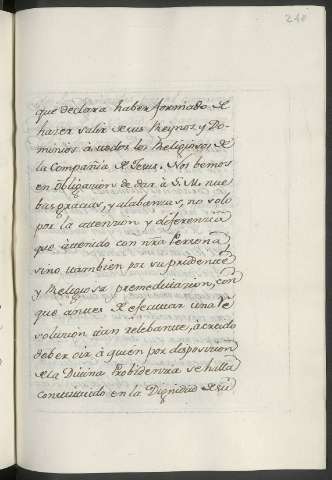 240
que declara haber formado de
hacer salir de sus Reynos, y Do-
minios à todos los Religiosos de
la Compañia de Jesus. Nos bemos
en obligazion de dar à S. M. nue
bas gracias, y alabanzas, no solo
por la atenzion y diferenzia
que à tenido con nra Persona
sino tambien por su prudente
y Religiosa premeditazion, con
que antes de efectuar una re
soluzion tan relebante, à creido
deber oir à quien por disposizion
de la Divina Probidenzia se halla
constituido en la Dignidad de su